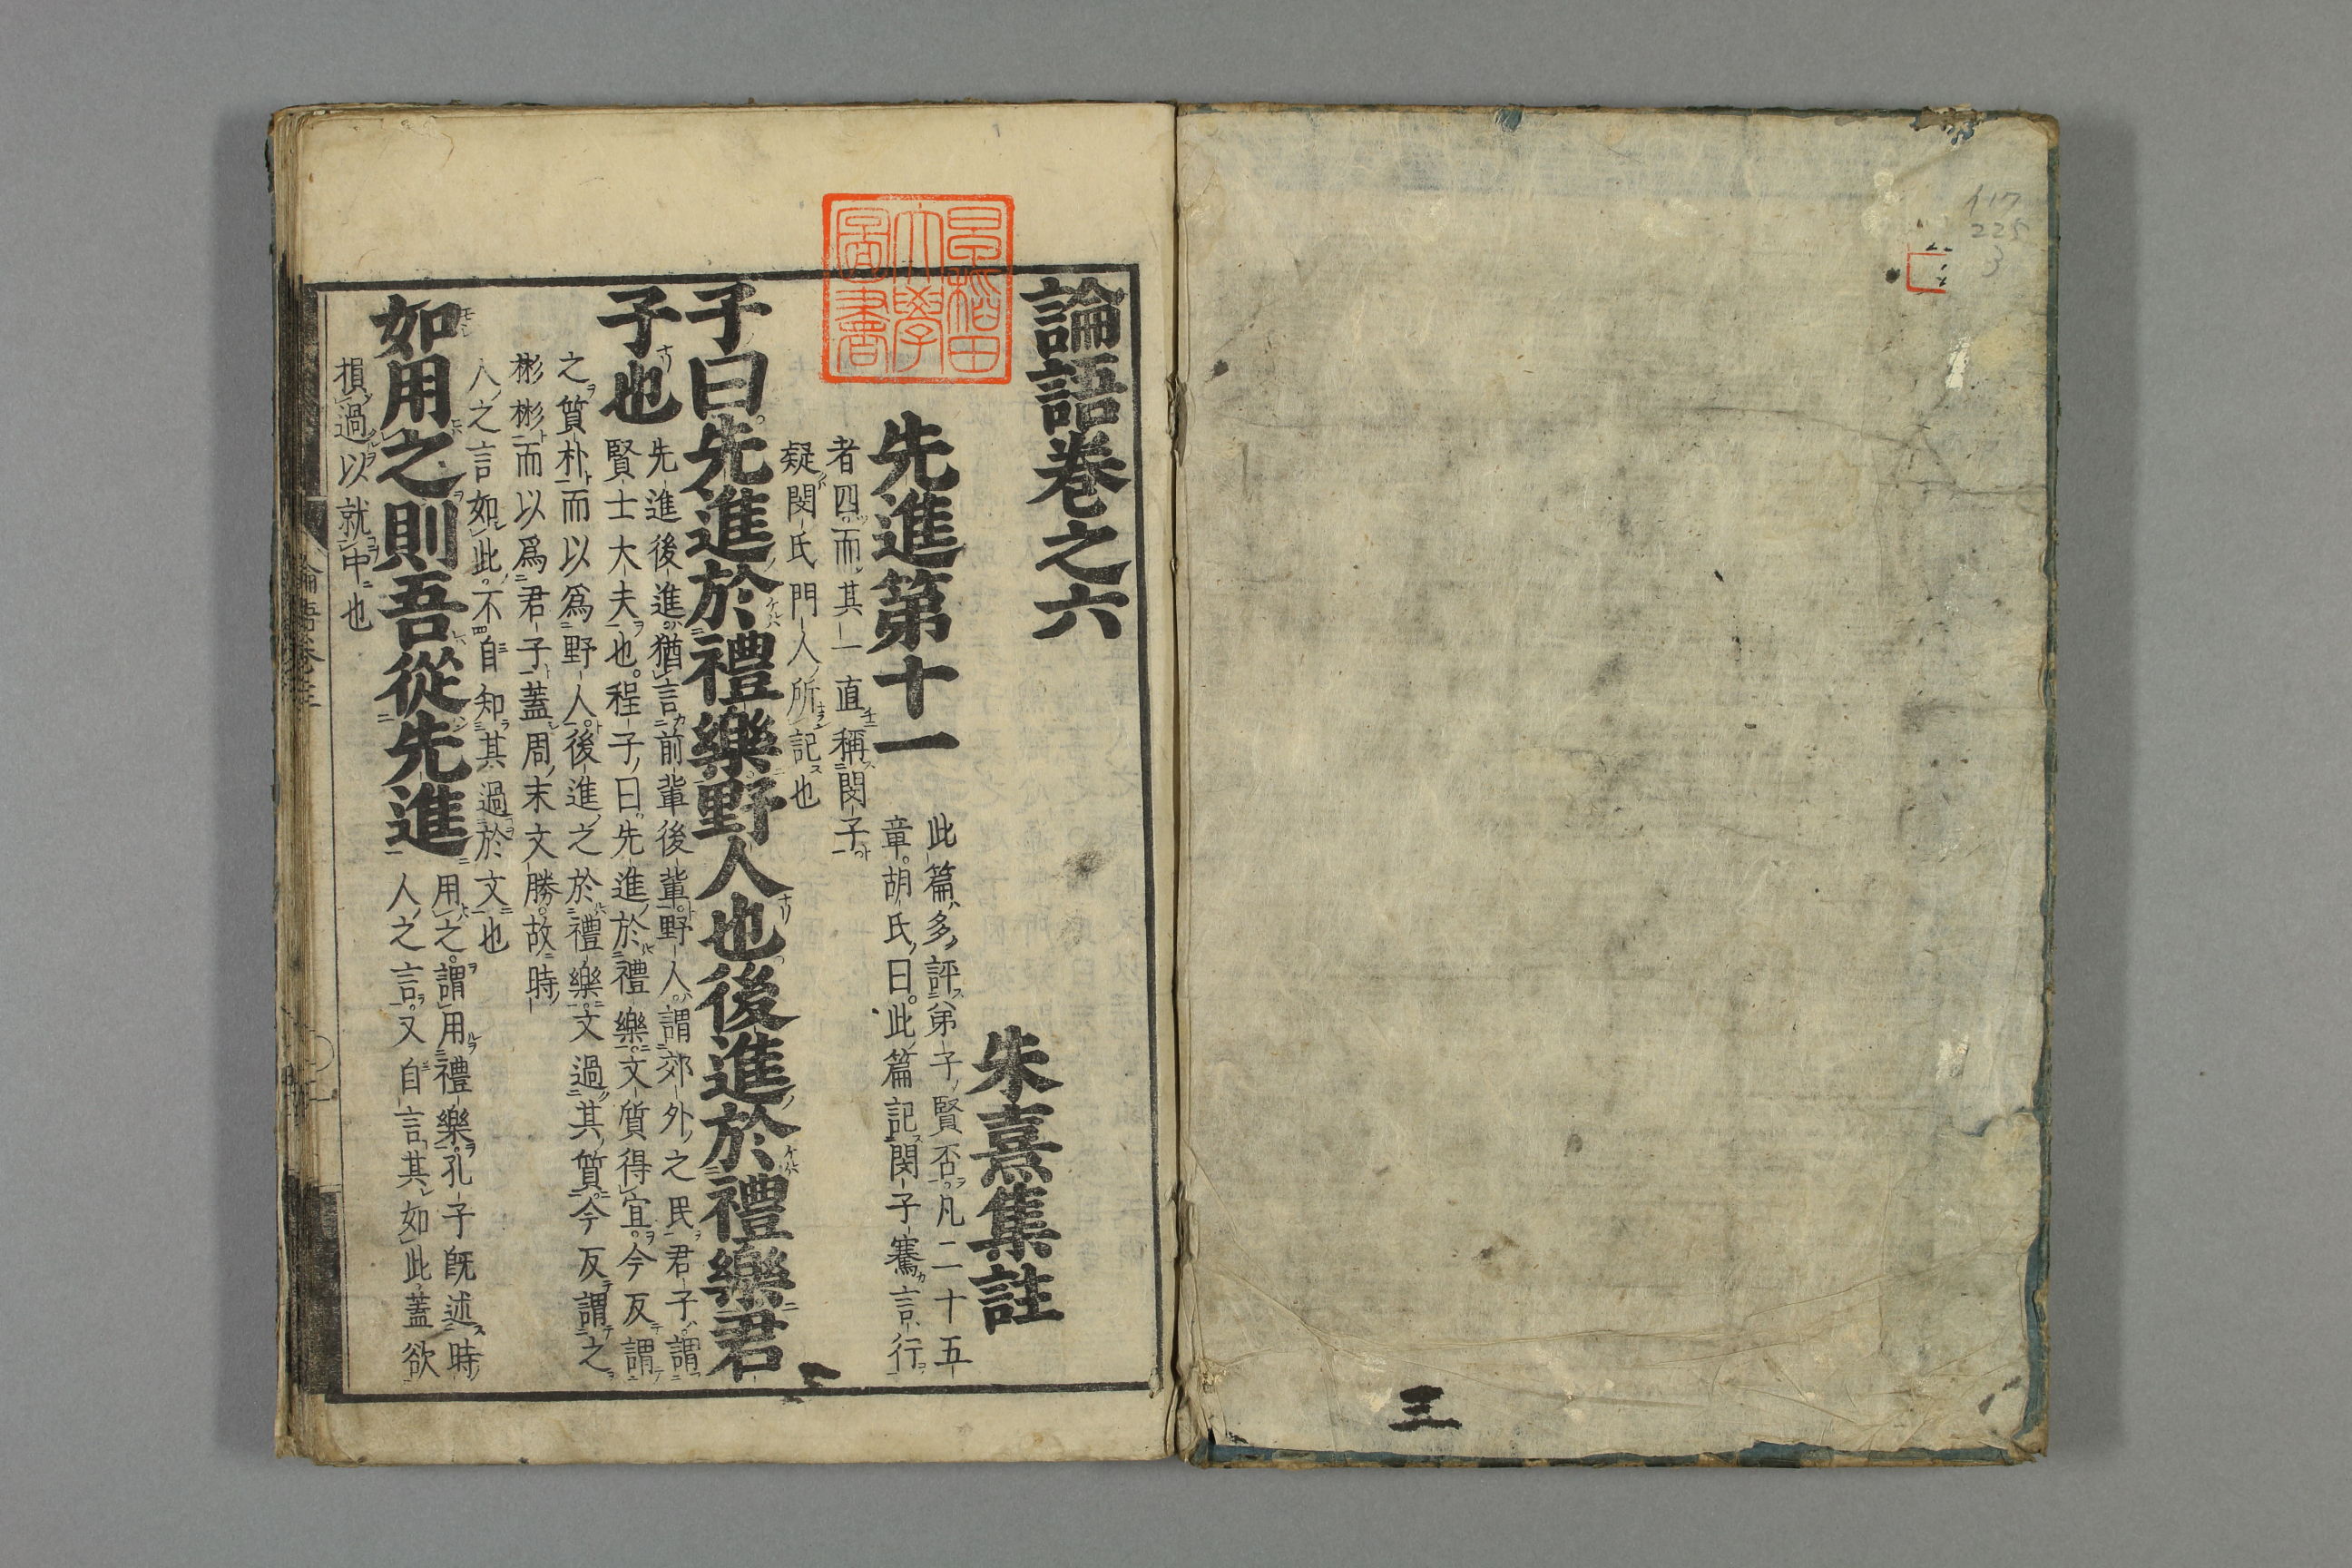 117
225
3
三
論語卷之六
早稲田
大學
圖書
朱熹集註
先進第十一
此篇多評弟子賢否凡二十五
章胡氏曰此篇記閔子騫言行
者四而其一直稱閔子
疑閔氏門人所記也
子曰先進於禮樂野人也後進於禮樂君
子也
先進後進猶言前輩後輩野人謂郊外之民君子謂
賢士大夫也程子曰先進於禮樂文質得宜今反謂
之質朴而以爲野人後進之於禮樂文過其質今反謂之
彬彬而以爲君子蓋周末文勝故時
人之言如此不自知其過於文也
如用之則吾從先進
用之謂用禮樂孔子既述時
人之言又自言其如此蓋欲
損過以就中也